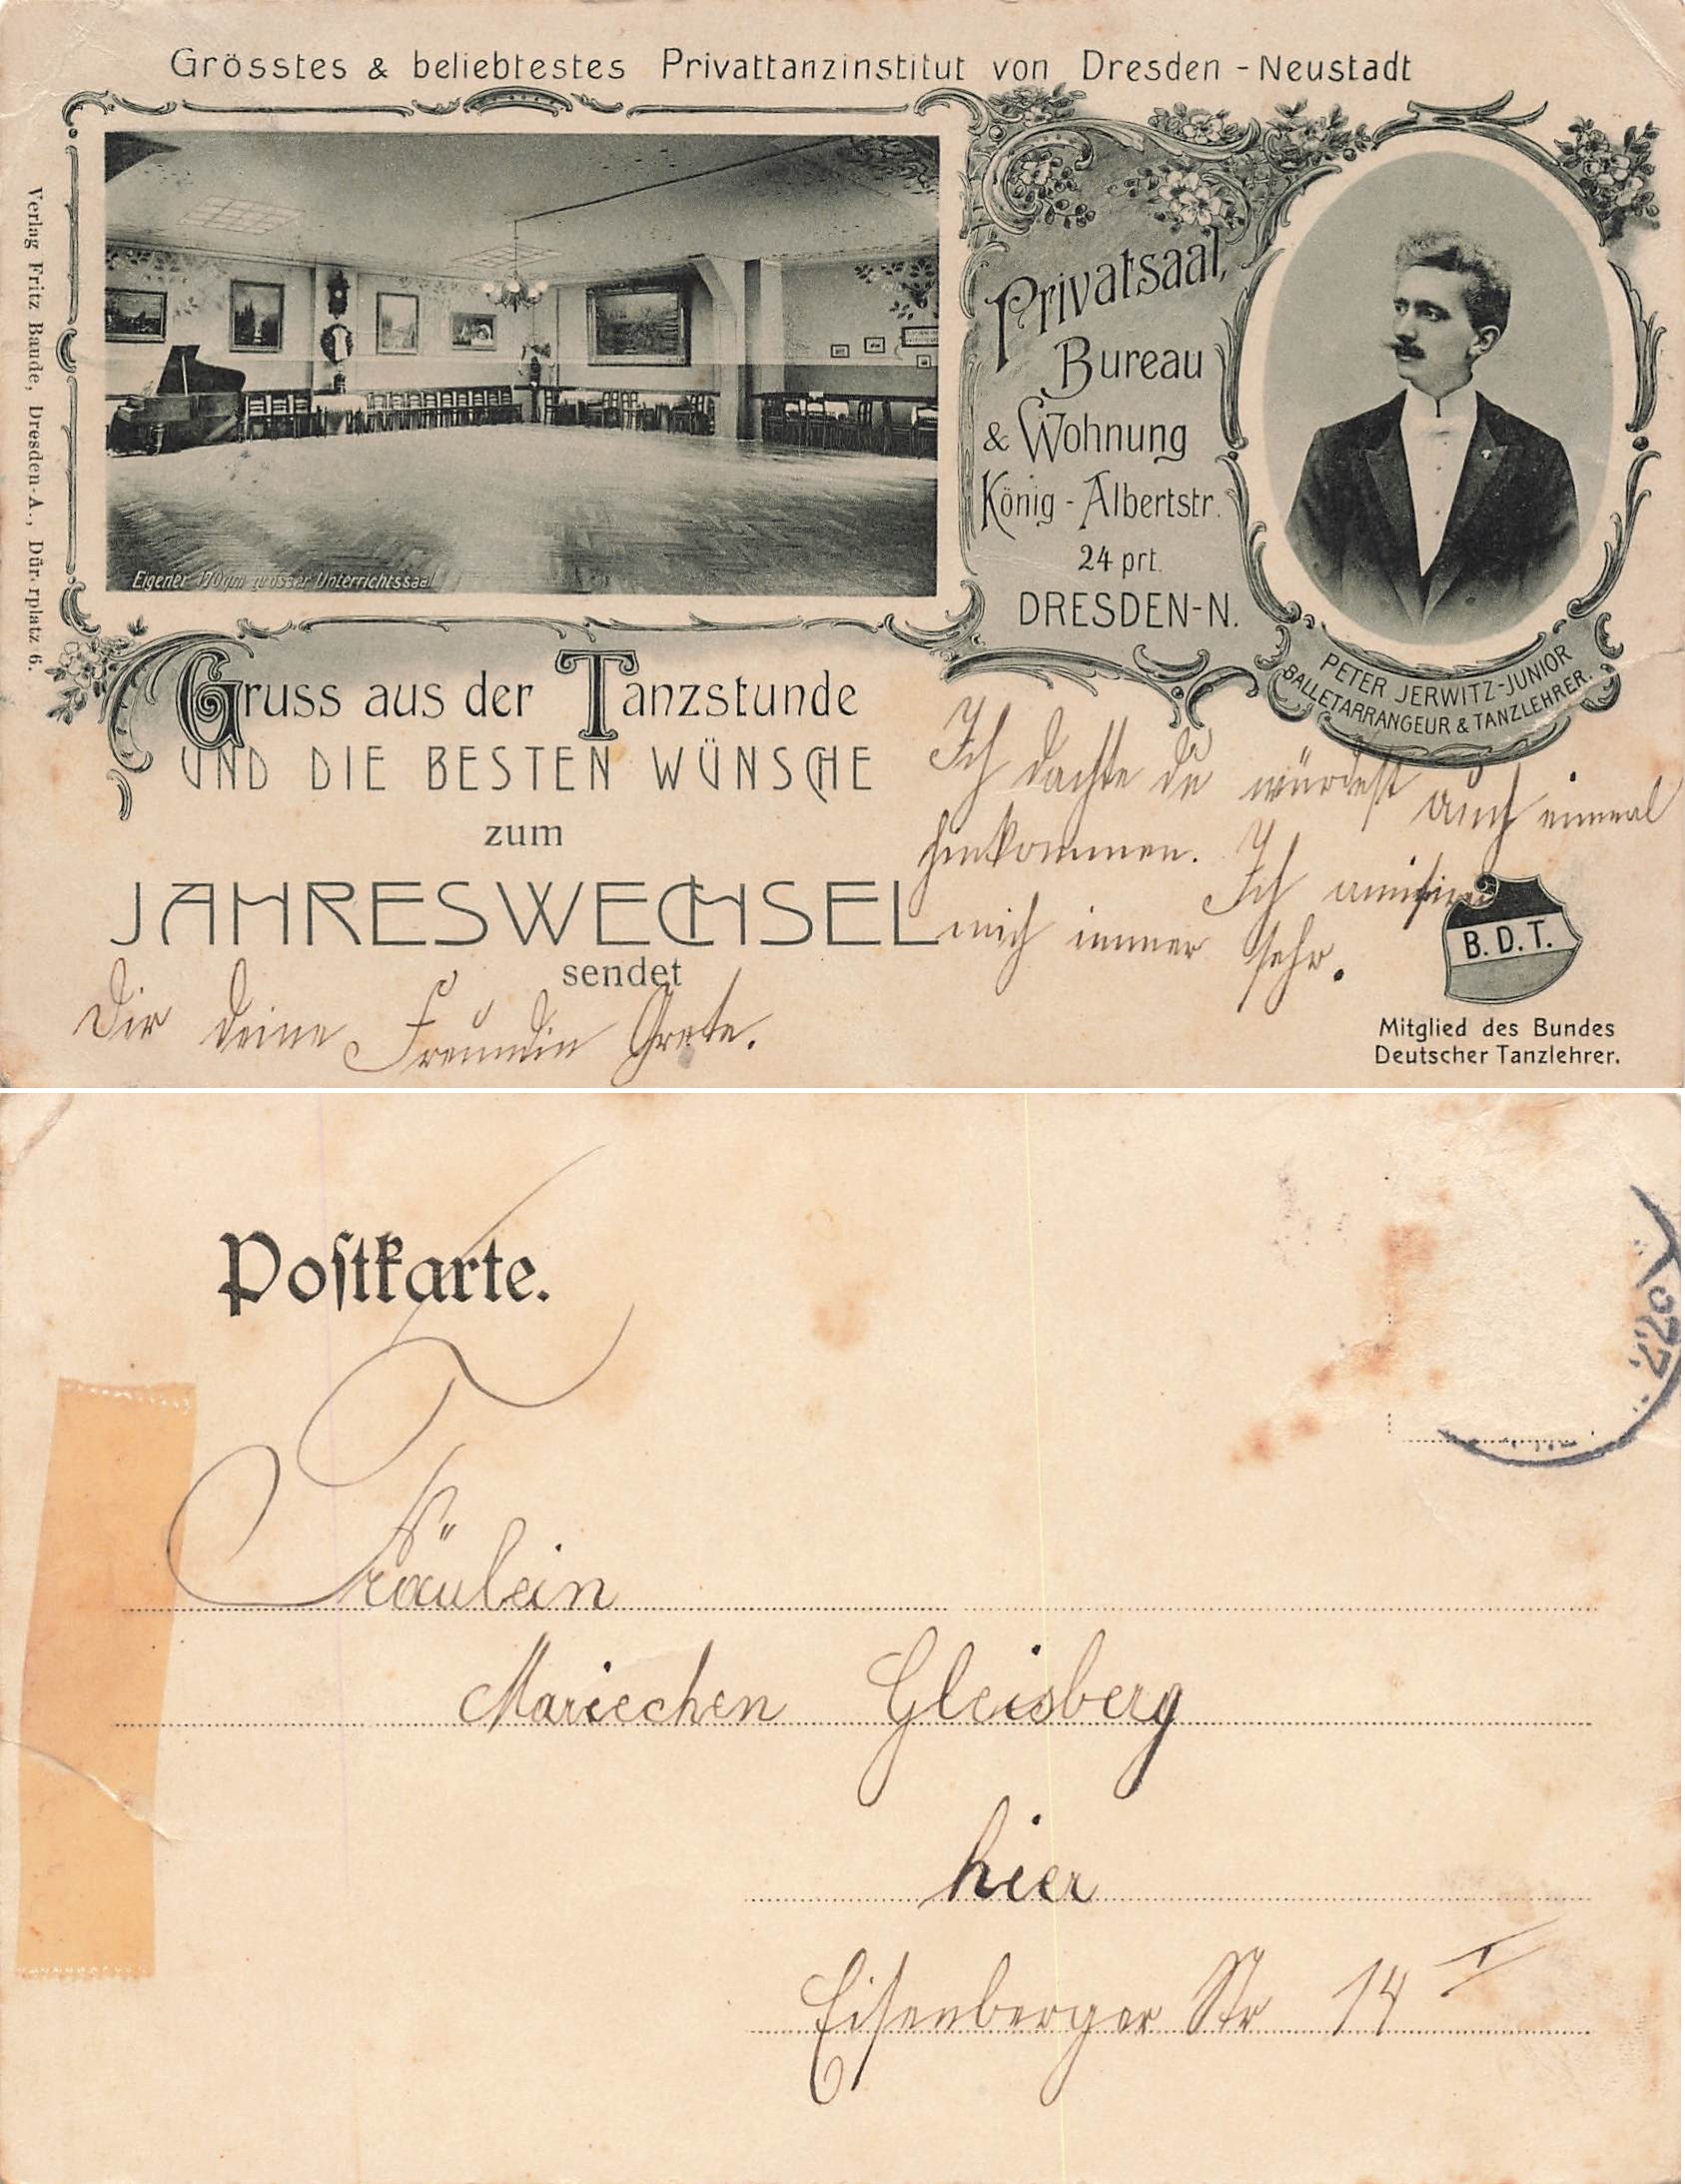 Grösstes & beliebtestes Privattanzinstitut von Dresden-Neustadt
Verlag Fritz Baude, Dresden-A., Dürerplatz 6.
Eigener 170qm grosser Unterrichtssaal
Privatsaal,
Bureau
& Wohnung
König-Albertstr.
24 prt.
DRESDEN-N.
PETER JERWITZ-JUNIOR
BALLETARRANGEUR & TANZLEHRER.
Gruss aus der Tanzstunde
UND DIE BESTEN WÜNSCHE
zum
JAHRESWECHSEL
sendet
Dir deine Freundin Grete.
Ich dachte du würdest auch einmal
hinkommen. Ich amüsire
mich immer sehr.
B.D.T.
Mitglied des Bundes
Deutscher Tanzlehrer.
Postkarte.
Fräulein
Mariechen Gleisberg
hier
Eisenberger Str 14 I